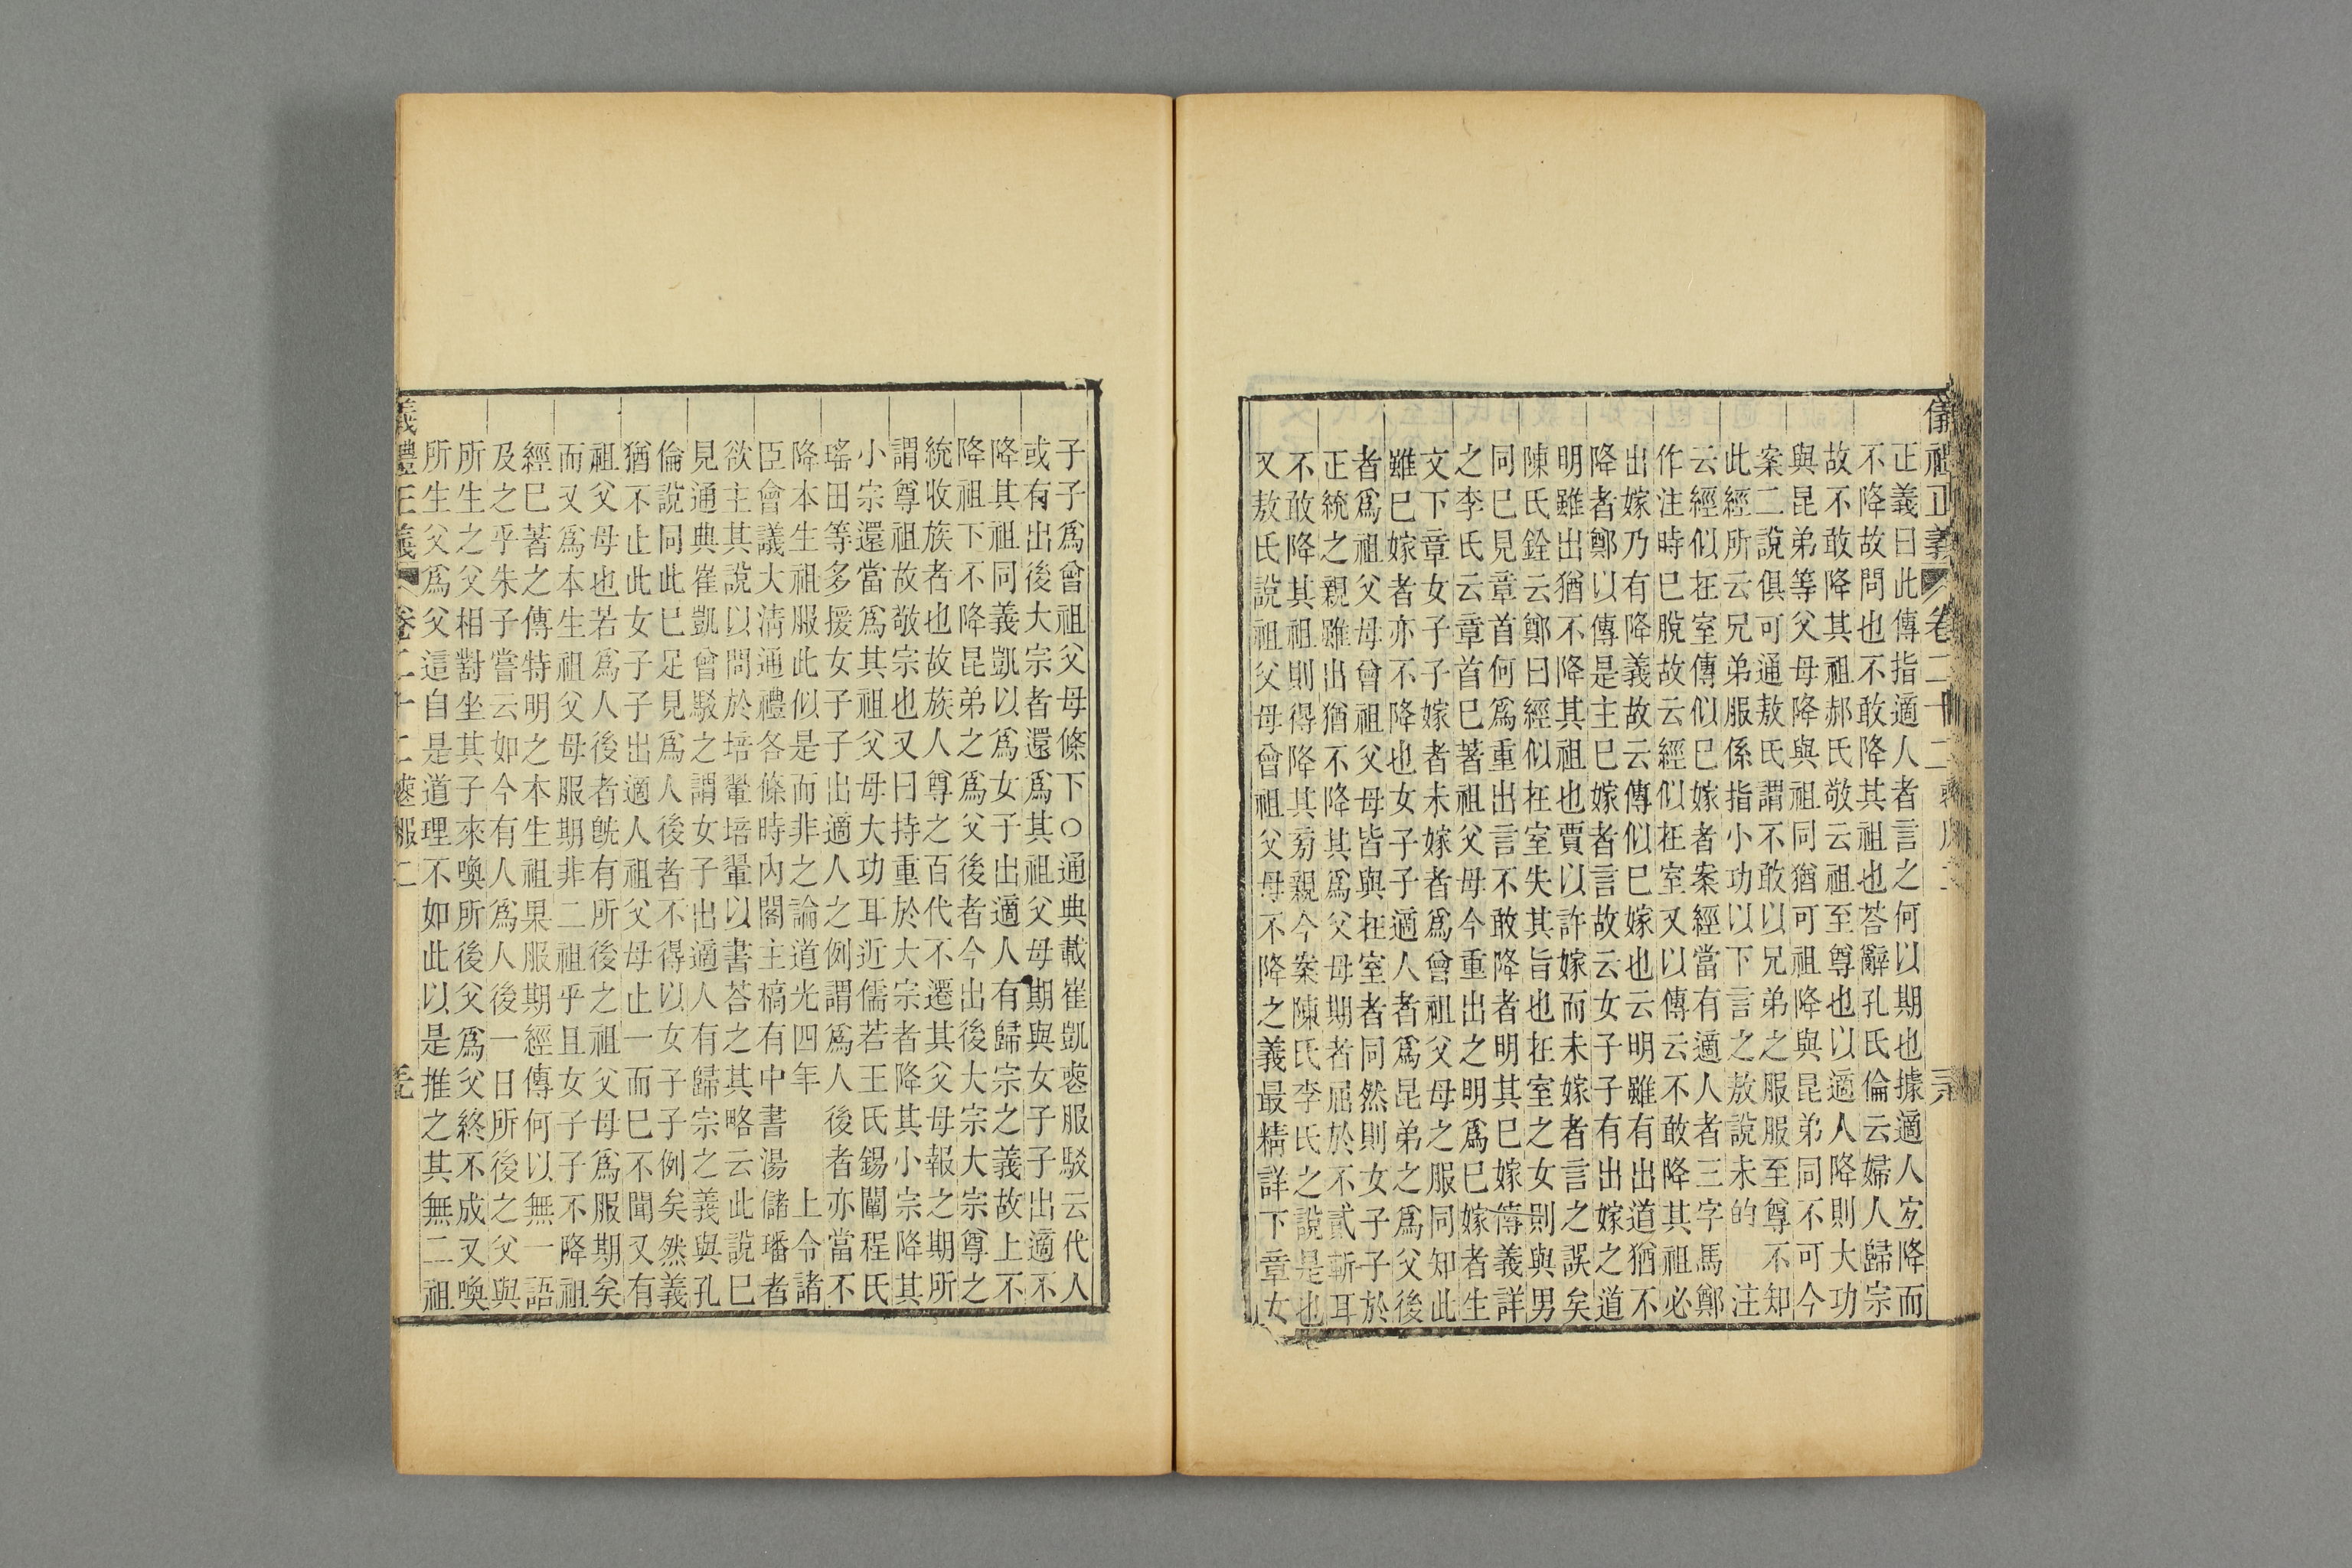 儀禮正義 卷二十二
正義曰此傳指適人者言之何以期也據適人宐降而
不降故問也不敢降其祖也荅辭孔氏倫云婦人歸宗
故不敢降其祖郝氏敬云祖至尊也以適人降則大功
與昆弟等父母降與祖同猶可祖降與昆弟同不可今
案二說俱可通敖氏謂不敢以兄弟之服服至尊 不知
此經所云兄弟服係指小功以下言之敖說未的 注
云經似在室傳似巳嫁者案經當有適人者三字馬鄭
作注時巳脫故云經似在室又以傳云不敢降其祖必
出嫁乃有降義故云傳似巳嫁也云明雖有出道猶不
降者鄭以傳是主巳嫁者言故云女子子有出嫁之道
明雖出猶不降其祖也賈以許嫁而未嫁者言之誤矣
陳氏銓云鄭曰經似在室失其旨也在室之女則與男
同巳見章首何爲重出言不敢降者明其巳嫁傳義詳
之李氏云章首巳著祖父母今重出之明爲巳嫁者生
文下章女子子嫁者未嫁者爲曾祖父母之服同知此
雖巳嫁者亦不降也女子子適人者爲昆弟之爲父後
者爲祖父母曾祖父母皆與在室者同然則女子子於
正統之親雖出猶不降其爲父母期者屈於不貳斬耳
不敢降其祖則得降其旁親今案陳氏李氏之說是也
又敖氏說祖父母曾祖父母不降之義最精詳下章女
子子爲曾祖父母條下○通典載崔凱喪服駁云代人
或有出後大宗者還爲其祖父母期與女子子出適不
降其祖同義凱以爲女于出適人有歸宗之義故上不
降祖下不降昆弟之爲父後者今出後大宗大宗尊之
統收族者也故族人尊之百代不遷其父母報之期所
謂尊祖故敬宗也又曰持重於大宗者降其小宗降其
小宗還當爲其祖父母大功耳近儒若王氏錫闡程氏
瑤田等多援女子子出適人之例謂爲人後者亦當不
降本生祖服此似是而非之論道光四年 上令諸
臣會議大清通禮各條時內閣主槁有中書湯儲璠者
欲主其說以問於培翬培翬以書荅之其略云此說巳
見通典崔凱曾駁之謂女子出適人有歸宗之義與孔
倫說同此巳足見爲人後者不得以女子子例矣然義
猶不止此女子子出適人祖父母止一而巳不聞又有
祖父母也若爲人後者旣有所後之祖父母爲服期矣
而又爲本生祖父母服期非二祖乎且女子子不降祖
經巳著之傳特明之本生祖果服期經傳何以無一語
及之乎朱子嘗云如今有人爲人後一日所後之父與
所生之父相對坐其子來喚所後父爲父終不成又喚
所生父爲父這自是道理不如此以是推之其無二祖
義禮正義 卷二十二 喪服二